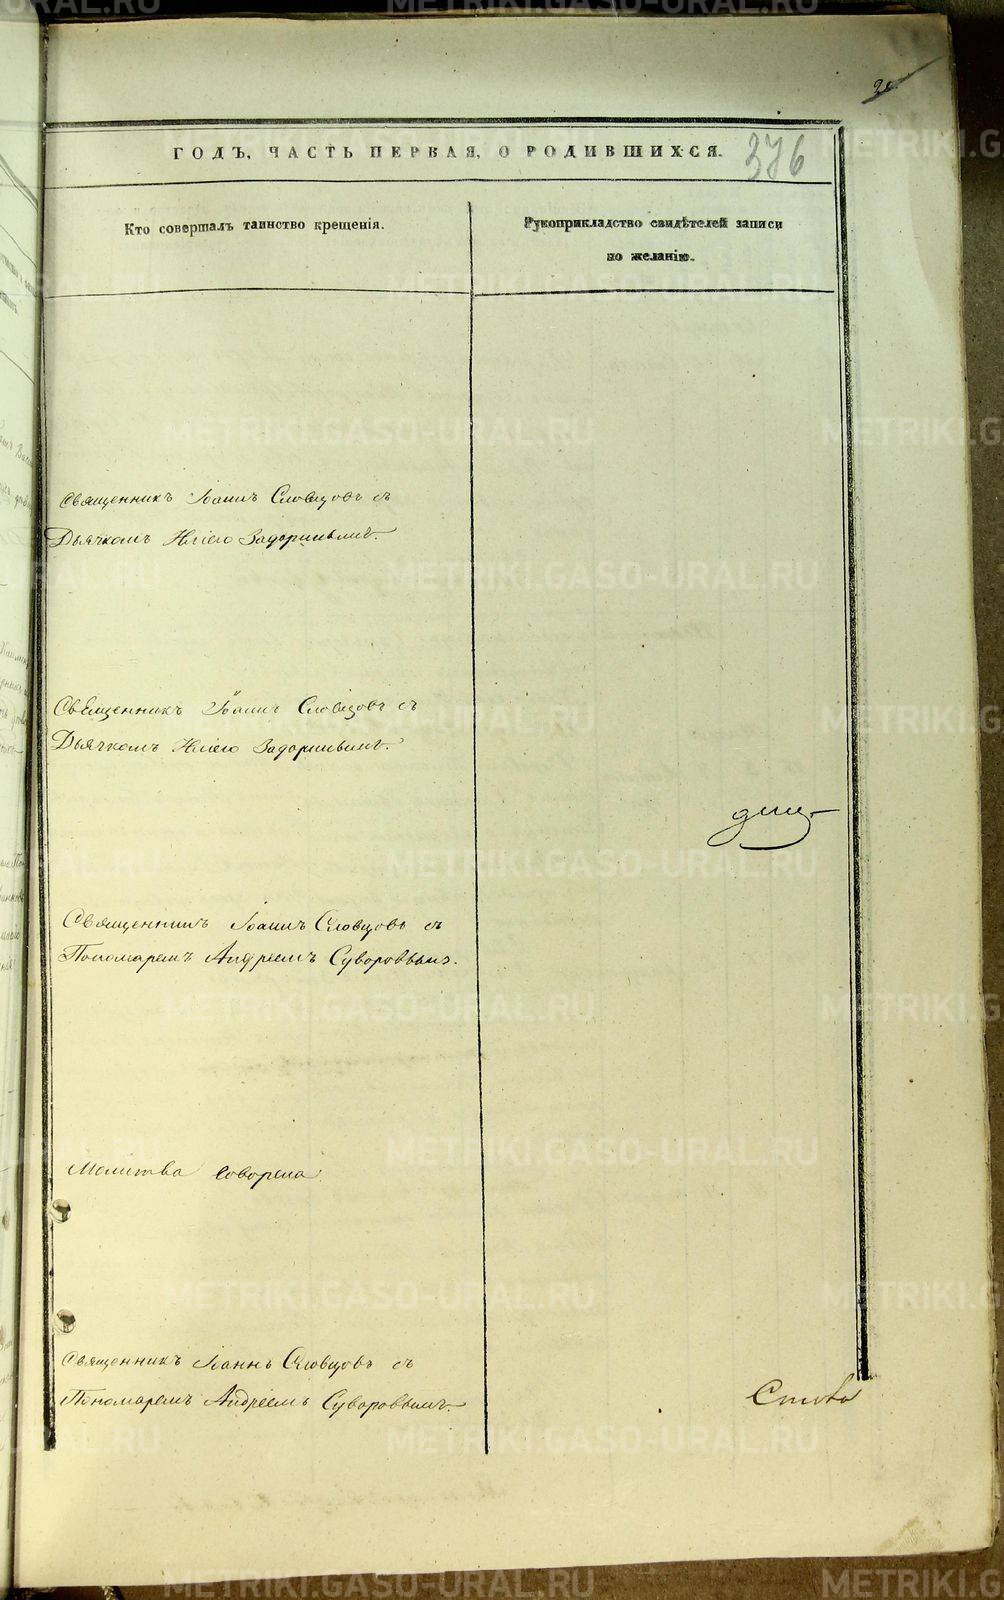 376
ГОДЪ, ЧАСТЬ ПЕРВАЯ, О РОДИВШИХСЯ.
Кто совершалъ таинство крещенія.
Рукоприкладство свидѣтелей записи
по желанію.
Священникъ Іоаннъ Словцовъ съ
Дьячкомъ Иліею Задоринымъ.
Священникъ Іоаннъ Словцовъ съ
Дьячкомъ Иліею Задоринымъ.
Священникъ Іоаннъ Словцовъ съ
Пономаремъ Андреемъ Суворовымъ.
Молитва
Священникъ Іоаннъ Словцовъ съ
Пономаремъ Андреемъ Суворовымъ.
METRIKI.GASO-URAL.RU